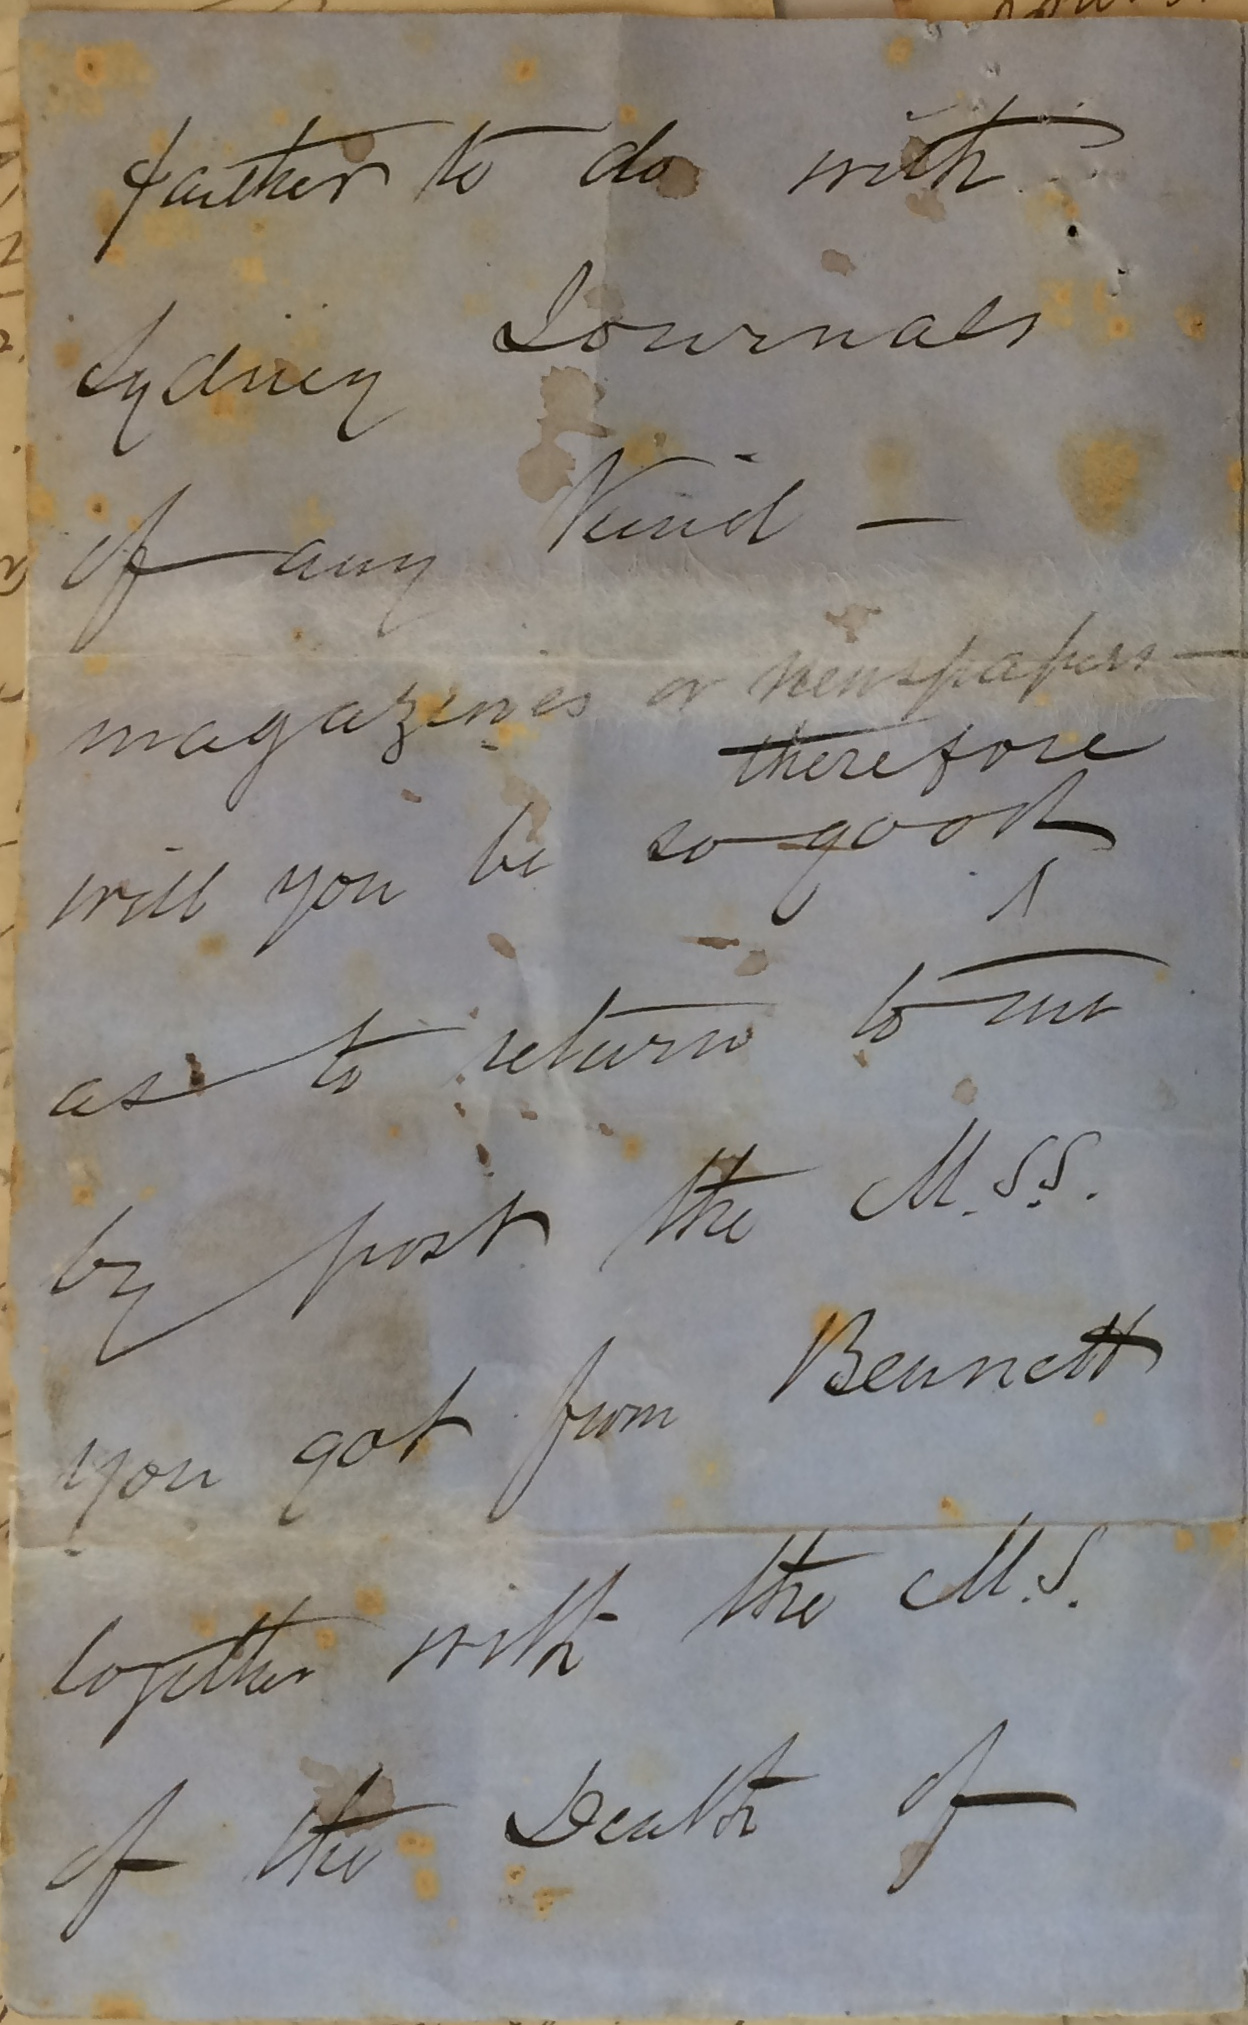 farther to do with
Sydney Journals
of any Kind —
magazines or newspapers —
therefore
will you be so good
^
as to return to me
by post the M.S.S.
you got from Bennett
together with the M.S.
of the Death of